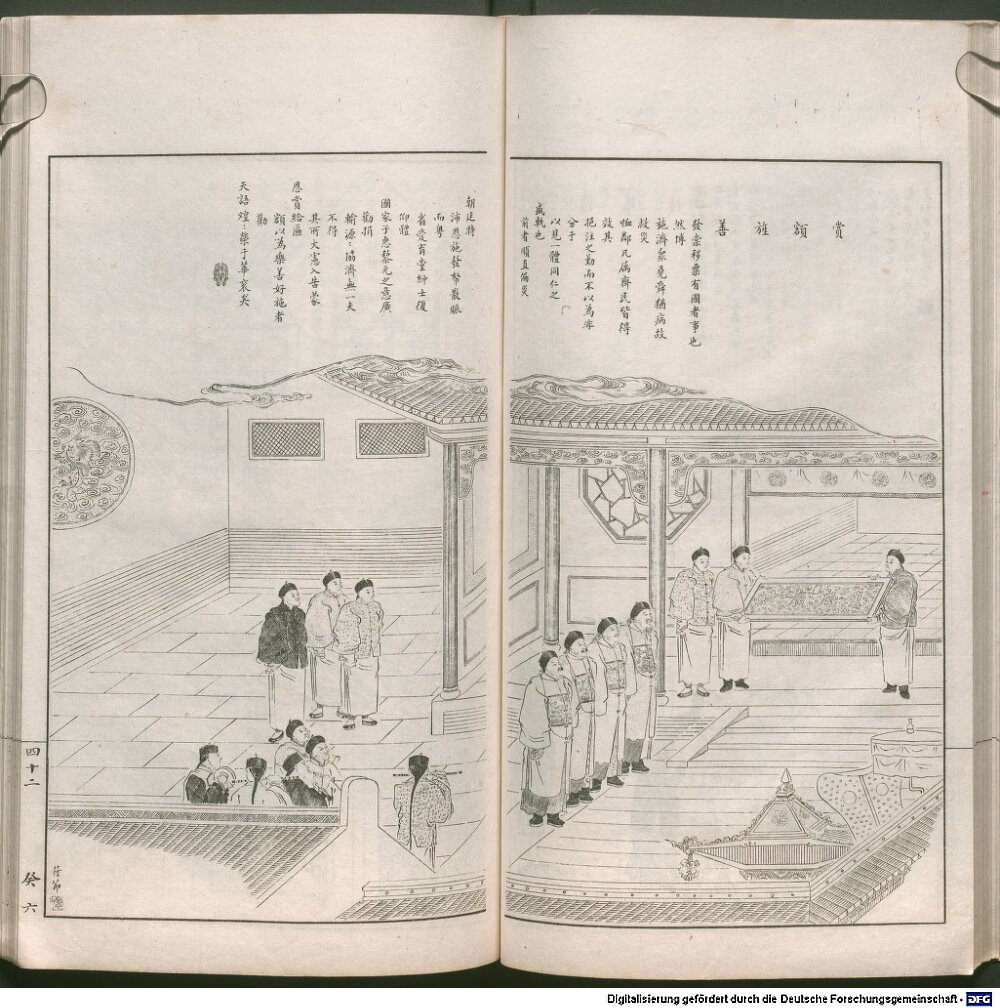 賞額旌善
發棠移粟有國者事也
然博
施濟衆堯舜猶病故
救災
恤鄰凡屬齊民皆得
效其
挹注之勤而不以為非
分于
以見一體同仁之
盛軌也
前者順直偏災
朝廷特
沛恩施發帑散賑
而粵
省愛育堂紳士復
仰體
國家子惠黎元之意廣
勸捐
輸源源協濟無一夫
不得
其所大憲入告蒙
恩賞給匾
額以為樂善好施者
勸
天語煌煌榮于華袞矣
符節
四十二
癸六
Digitalisierung gefördert durch die Deutsche Forschungsgemeinschaft - DFG